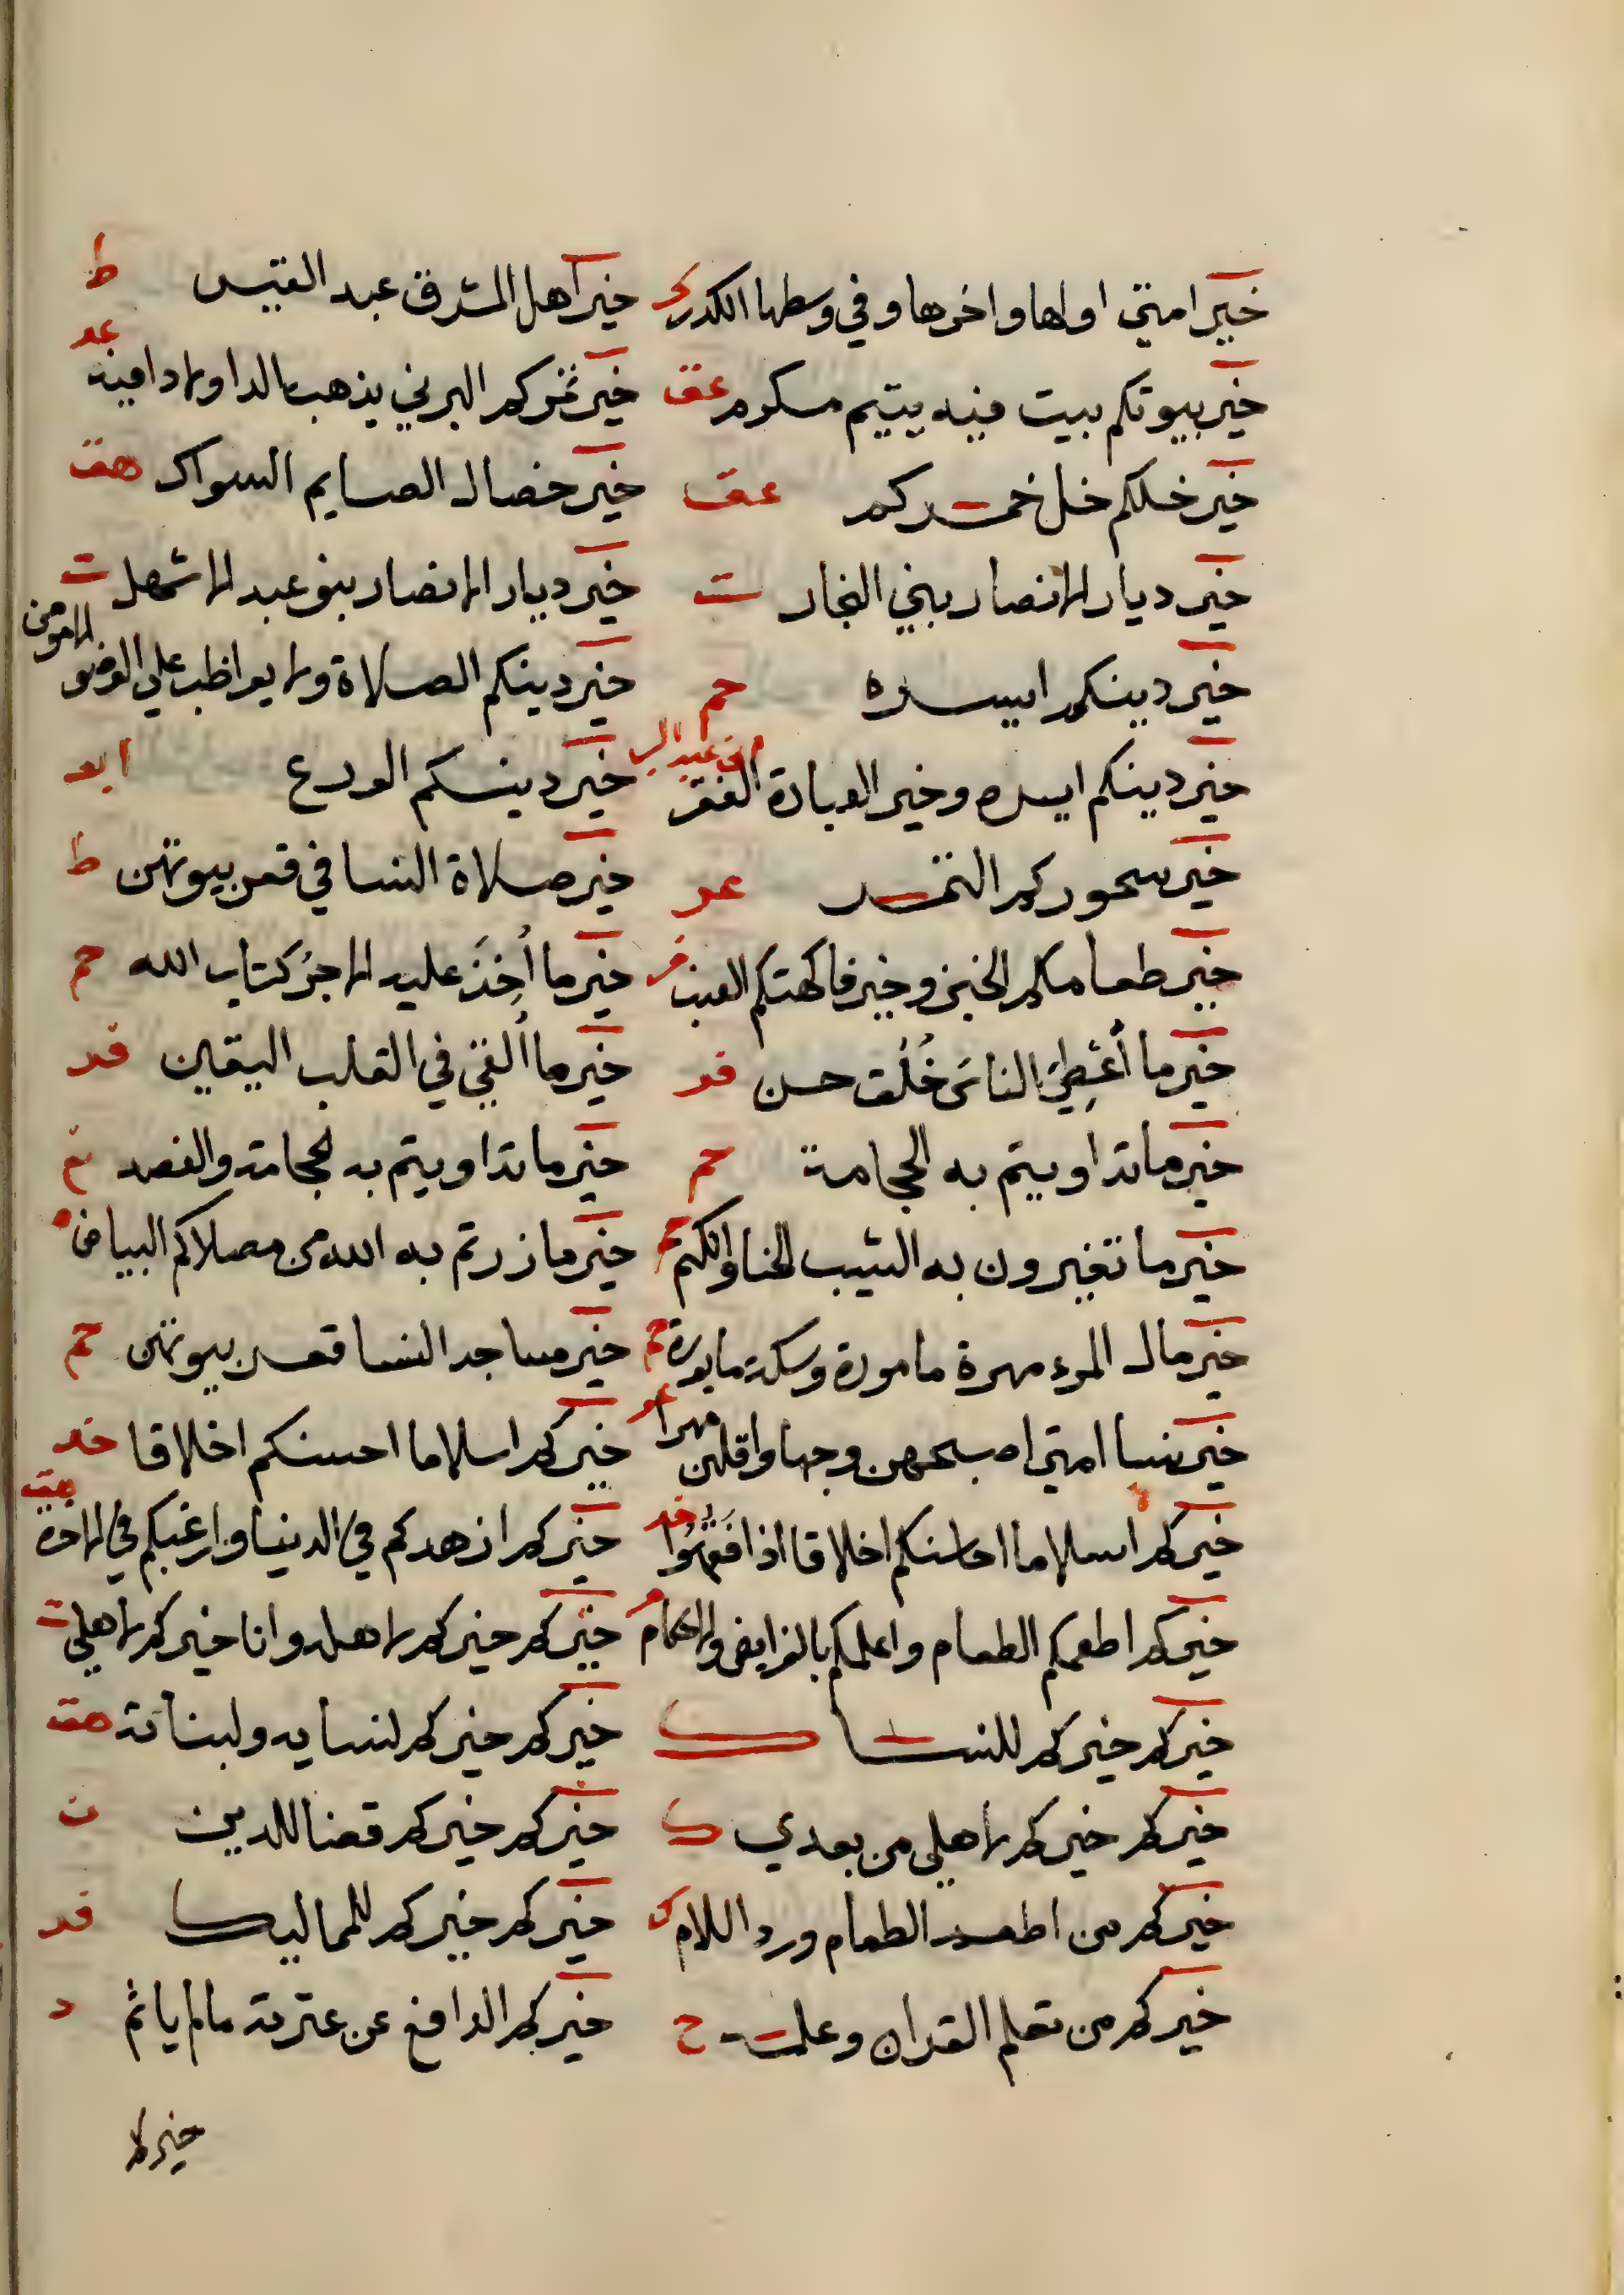 خير امتي اولها واخرها وفي وسطها الكدر خير اهل المشرق عبد القيس ط
خير بيوتكم بيت فيه يتيم مكرم عق خير تمركم البرني يذهب بالدا ولا دا فيه عد
خير خلكم خل خمركم عق خير خصال الصايم السواك هق
خير ديار الانصار بني النجار ت خير ديار الانصار بنو عبد الاشهل ت
خير دينكم ايسره حم خير دينكم الصلاة ولا يواظب علي الوضو الا مومن
خير دينكم ايسره وخير العبادة الفقه خير دينكم الورع ابو
خير سحوركم التمر عد خير صلاة النسا في قعر بيوتهن ط
خير طعامكم الخبز وخير فاكهتكم العنب فر خير ما أُخِذَ عليه الاجرُ كتاب الله حم
خير ما أُعْطِيَ الناسَ خُلُق حسن فر خير ما أُلقي في القلب اليقين فر
خير ما تداويتم به الحجامة حم خير ما تداويتم به الحجامة والفصد
خير ما تغيرون به الشيب الحنا والكتم خير ما زرتم به الله في مصلاكم البياض
خير مال المرء مهرة مامورة وسكة مابورة حم خير مساجد النسا قعر بيوتهن حم
خير نسا امتي اصبحهن وجها واقلهن مهرا عد خيركم اسلاما احسنكم اخلاقا خد
خيركم اسلاما احاسنكم اخلاقا اذا فَقُهُوا خد خيركم ازهدكم في الدنيا وارغبكم في الاخرة هق
خيركم اطعمكم الطعام واعلمكم بالفرايض والاحكام خيركم خيركم لاهله وانا خيركم لاهلي ت
خيركم خيركم للنسا ك خيركم خيركم لنسايه ولبناته هق
خيركم خيركم لاهلي من بعدي ك خيركم خيركم قضا للدين ن
خيركم من اطعم الطعام ورد السلام ك خيركم خيركم للمماليك فر
خيركم من تعلم القران وعلمه ح خيركم الدافع عن عترته ما لم ياثم د
خيركم